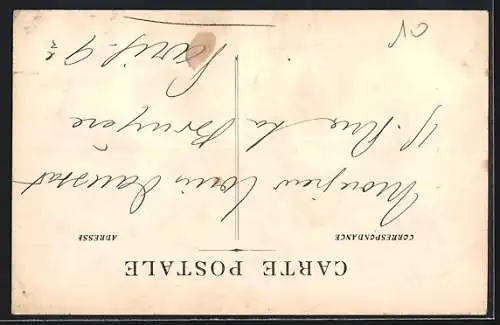 CARTE POSTALE
CORRESPONDANCE
ADRESSE
Monsieur Louis
11. Rue La Bruyère
Paris. 9